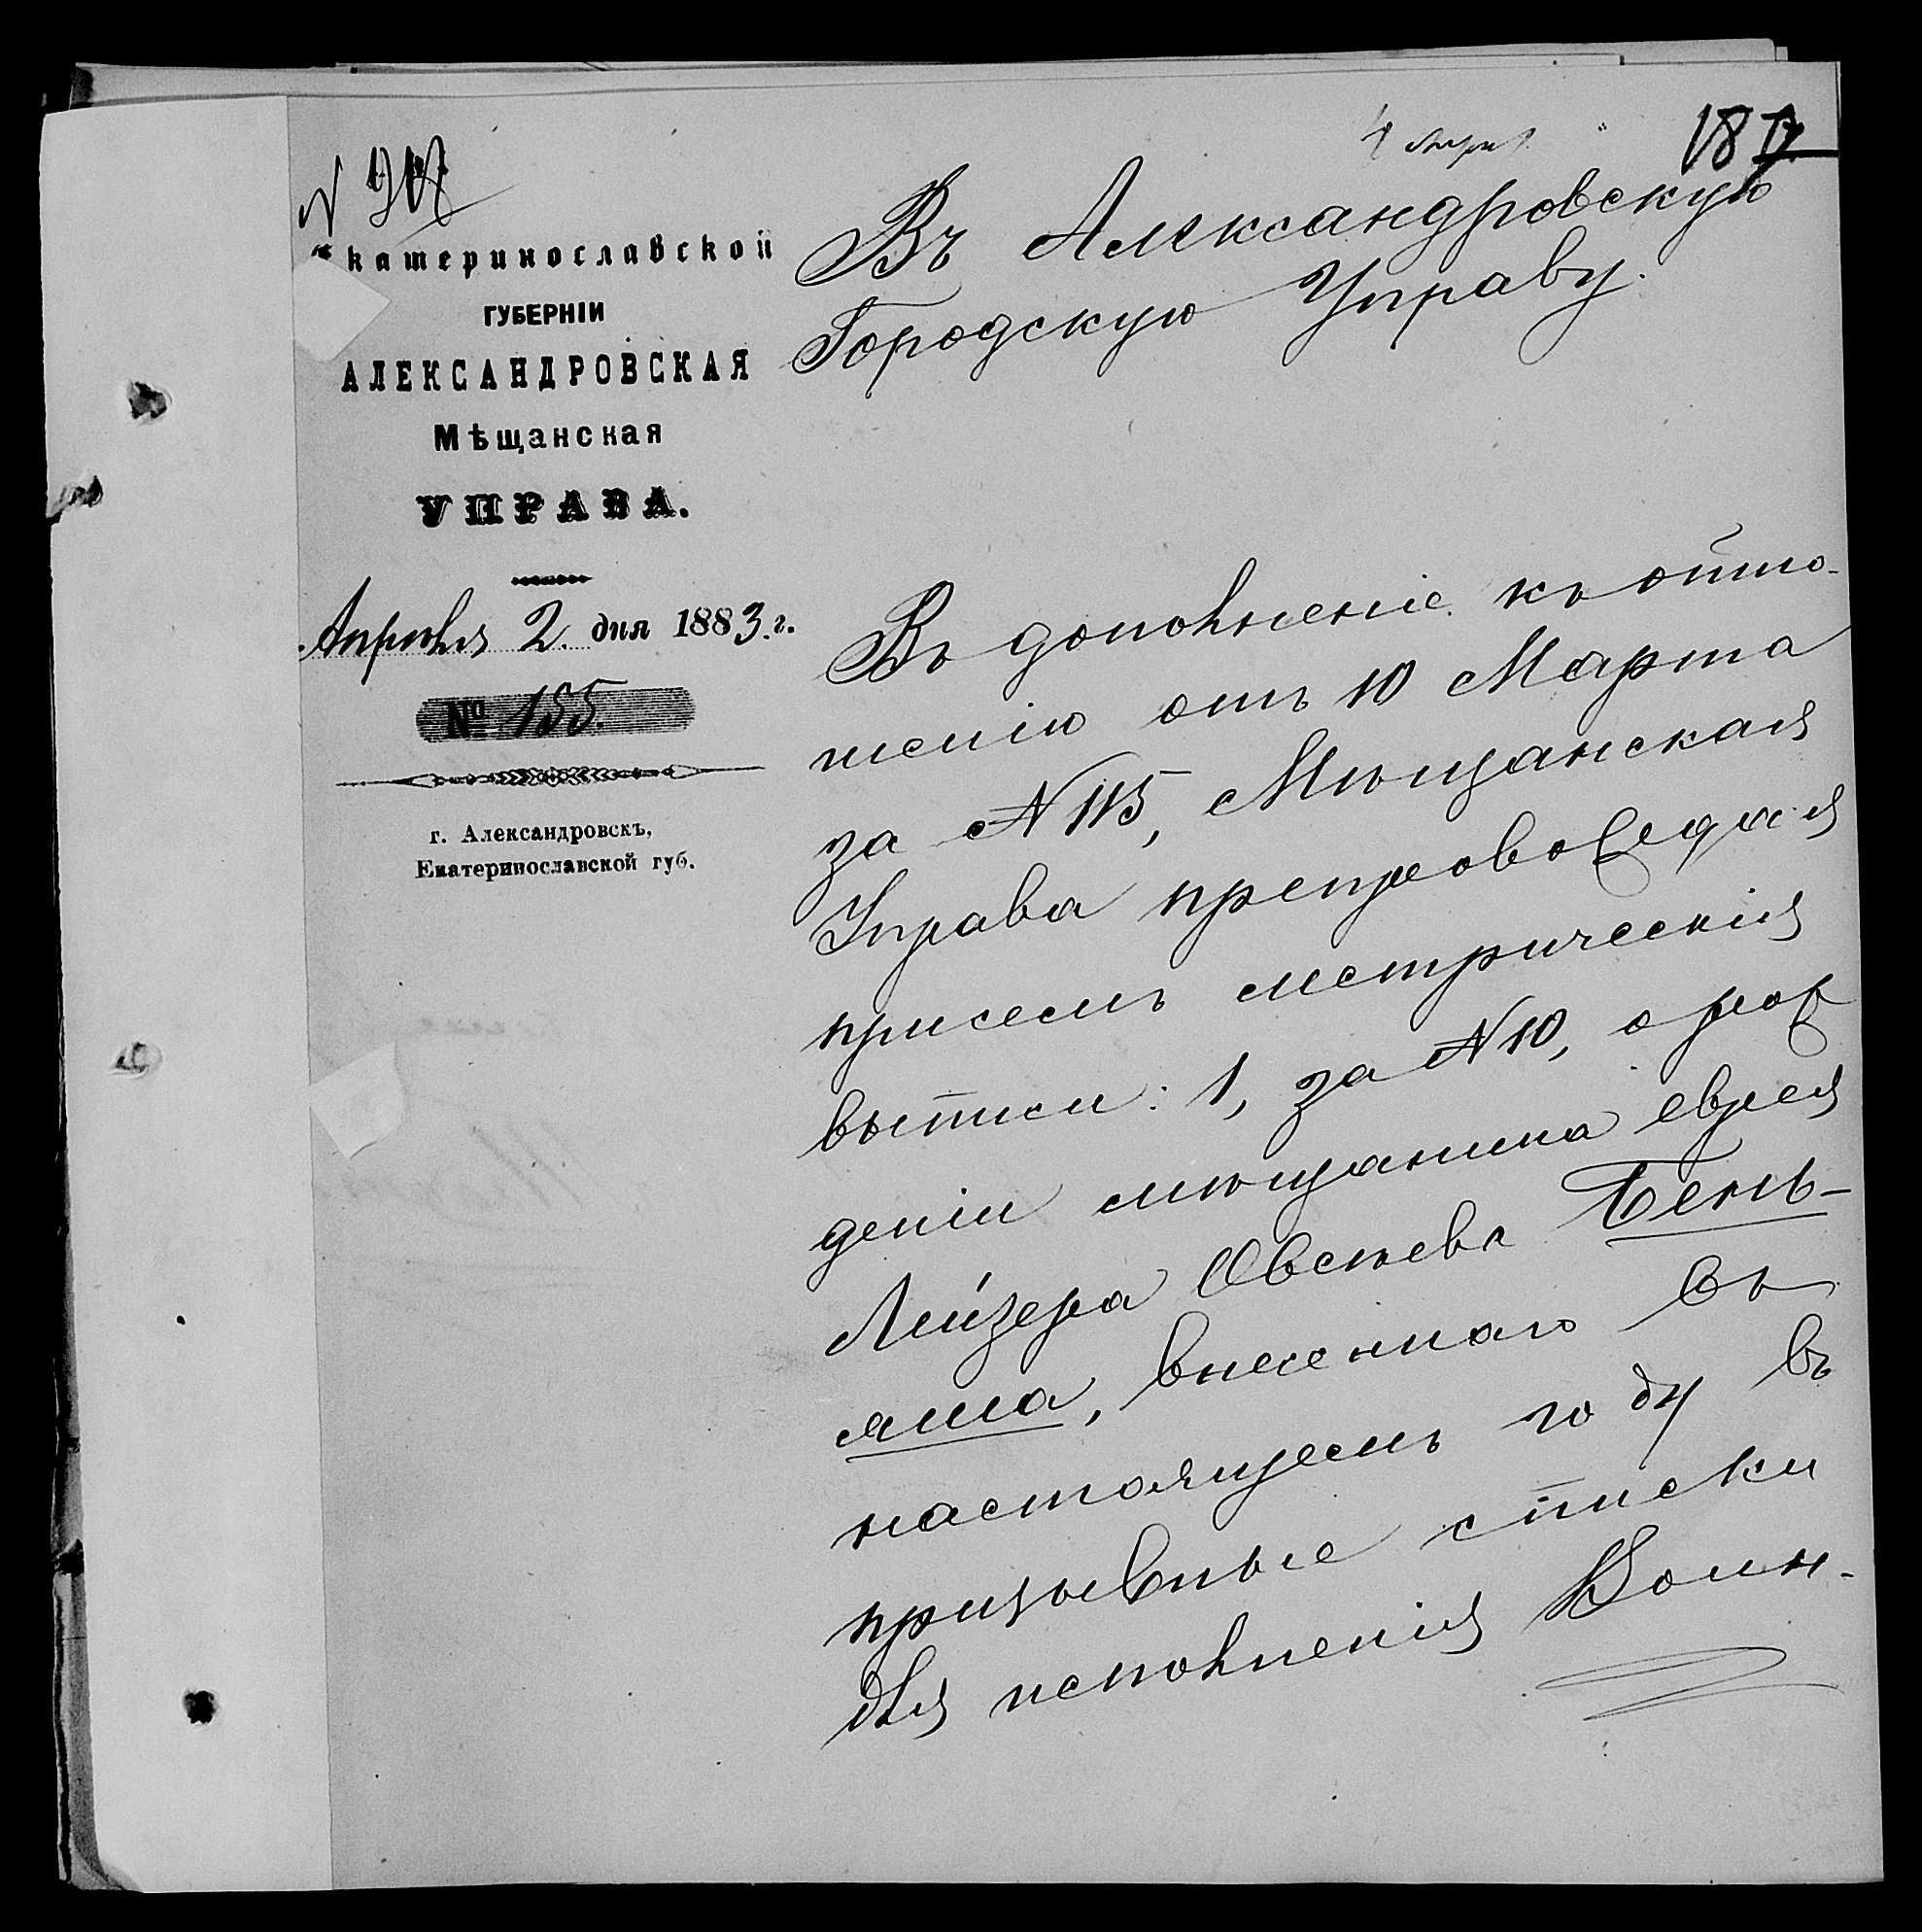 4 Апр.
18
N
Екатеринославской
ГУБЕРНІИ
АЛЕКСАНДРОВСКАЯ
Мѣщанская
УПРАВА.
Апрѣля 2. дня 1883. г.
№ 155.
г. Александровскъ,
Екатеринославской губ.
Въ Александровскую
Городскую Управу.
Въ дополненіе къ отно-
шенію отъ 10 Марта
за N 115, Мѣщанская
Управа препровождая
присемъ метрическія
выписи: 1, за N 10, о рож
деніи мѣщанина еврея
Лейзера Овсѣева Бень-
яша, внесеннаго въ
настоящемъ году въ
призывные списки
для исполненія Воин-